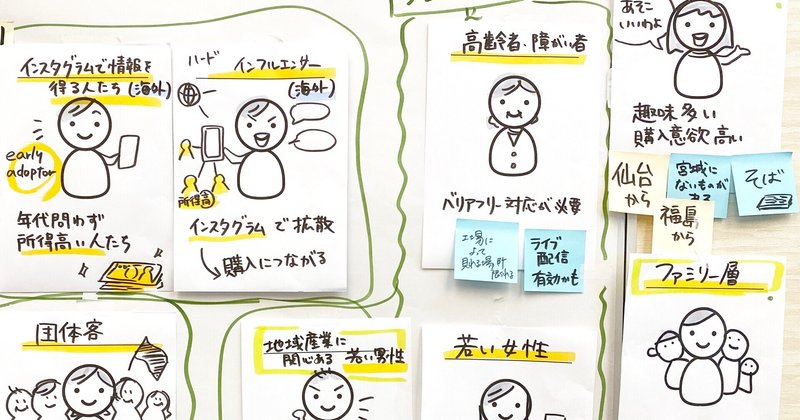 インスタグラムで情報を
得る人たち(海外)
early
adopter
年代問わず
所得高い人たち
ハード
インフルエンサー
(海外)
所得高
インスタグラムで拡散
購入につながる
高齢者、障がい者
バリアフリー対応が必要
工場に
よって
ライブ
配信
有効かも
あそこ
いいわよ
趣味多い
購入意欲高い
仙台
から
宮城に
ないものが
ある
そば
福島
から
ファミリー層
団体客
地域産業に
関心ある 若い男性
若い女性